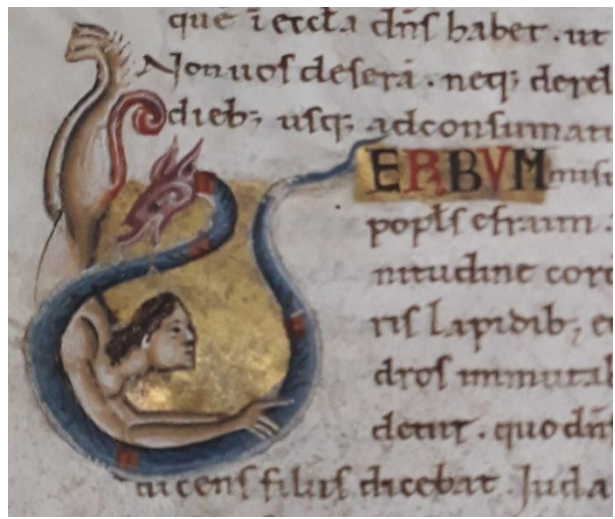 que i eccła dn̄s habet. ut
Non uos deserā. neq; derel
dieb; usq; adconsumati
VERBVM misi
popl̄s efraim.
nitudine cord
ris lapidib; e
dros immutab
detur. quod dn̄
dicens filiis dicebat. Juda